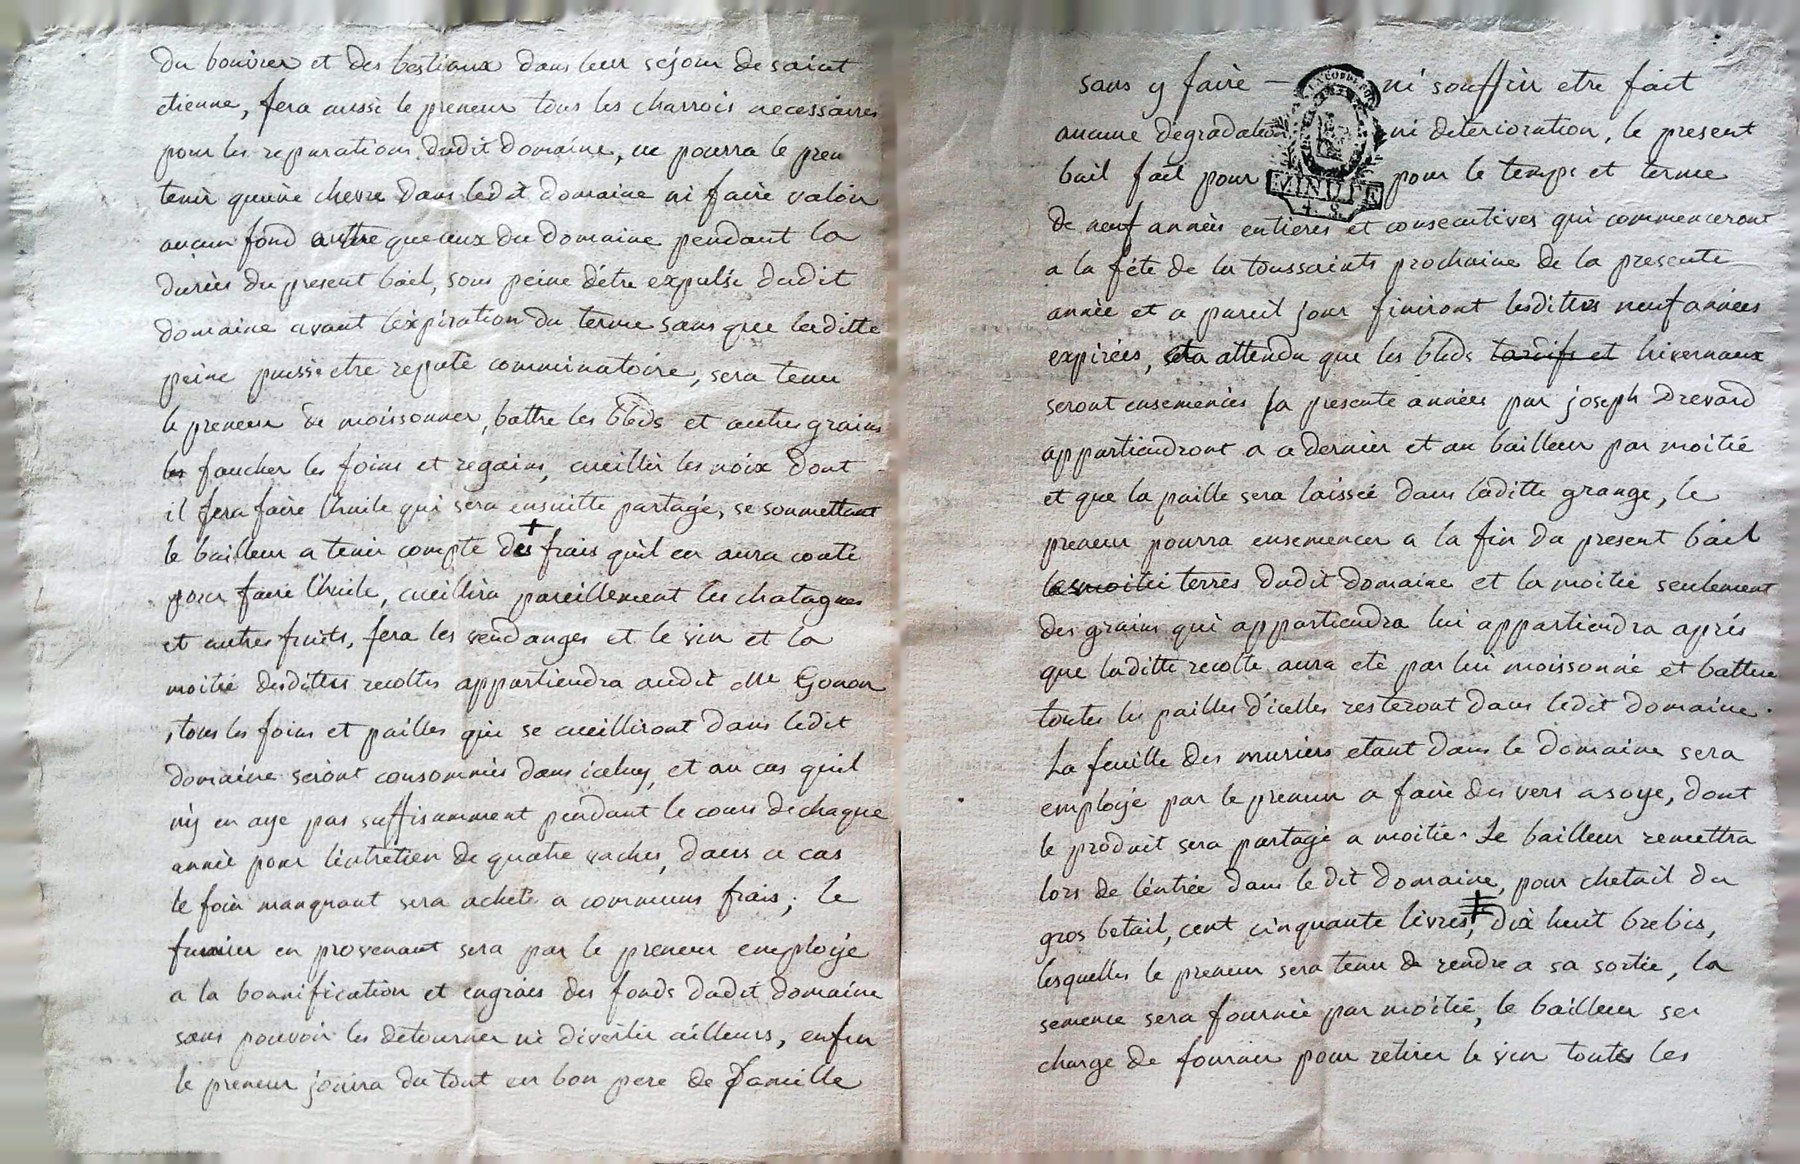 du bouvier et des bestiaux dans leur séjour de saint
etienne, fera aussi le preneur tous les charrois necessaires
pour les reparations dudit domaine, ne pourra le pren
tenir quune chevre dans ledit domaine ni faire valoir
aucun fond autre que ceux du domaine pendant la
durèe du present bail, sous peine d'étre expulsé dudit
domaine avant l'expiration du terme sans que laditte
peine puisse etre reputé comminatoire, sera tenu
le preneur de moissonner, battre les bleds et autres grains
les faucher les foins et regains, cueillir les noix dont
il fera faire lhuile qui sera ensuitte partagé, se soumettant
le bailleur a tenir compte des + frais quil en aura couté
pour faire lhuile, cueillira pareillement les chatagnes
et autres fruits, fera les vendanges et le vin et la
moitié desdittes recoltes appartiendra audit Me Gonon
, tous les foins et pailles qui se cueilliront dans ledit
domaine seront consommés dans iceluy, et au cas quil
n'y en aye pas suffisamment pendant le cours de chaque
année pour l'entretien de quatre vaches, dans ce cas
le foin manquant sera acheté a communs frais; le
fumier en provenant sera par le preneur employé
a la bonnification et engrais des fonds dudit domaine
sans pouvoir les détourner ni divertir ailleurs, enfin
le preneur jouira du tout en bon pere de famille
sans y faire — ni souffrir etre fait
aucune degradation ni détérioration, le present
bail fait pour pour le temps et terme
MINUTE
de neuf années entieres et consecutives qui commenceront
a la féte de la toussaints prochaine de la presente
année et a pareil jour finiront lesdittes neuf années
expirées, et a attendu que les bleds tardifs et hivernaux
seront ensemencés la presente années par joseph Drevard
appartiendront a ce dernier et au bailleur par moitié
et que la paille sera laissée dans laditte grange, le
preneur pourra ensemencer a la fin du present bail
les moitié terres dudit domaine et la moitié seulement
des grains qui appartiendra lui appartiendra aprés
que laditte recolte aura eté par lui moissonné et battue
toutes les pailles d'icelles resteront dans ledit domaine.
La feuille des muriers etant dans le domaine sera
employé par le preneur a faire des vers a soye, dont
le produit sera partagé a moitié. Le bailleur remettra
lors de l'entrée dans le dit domaine, pour chetail du
gros betail, cent cinquante livres, dix huit brebis,
lesquelles le preneur sera tenu de rendre a sa sortie, la
semence sera fournie par moitié, le bailleur se
charge de fournir pour retirer le vin toutes les